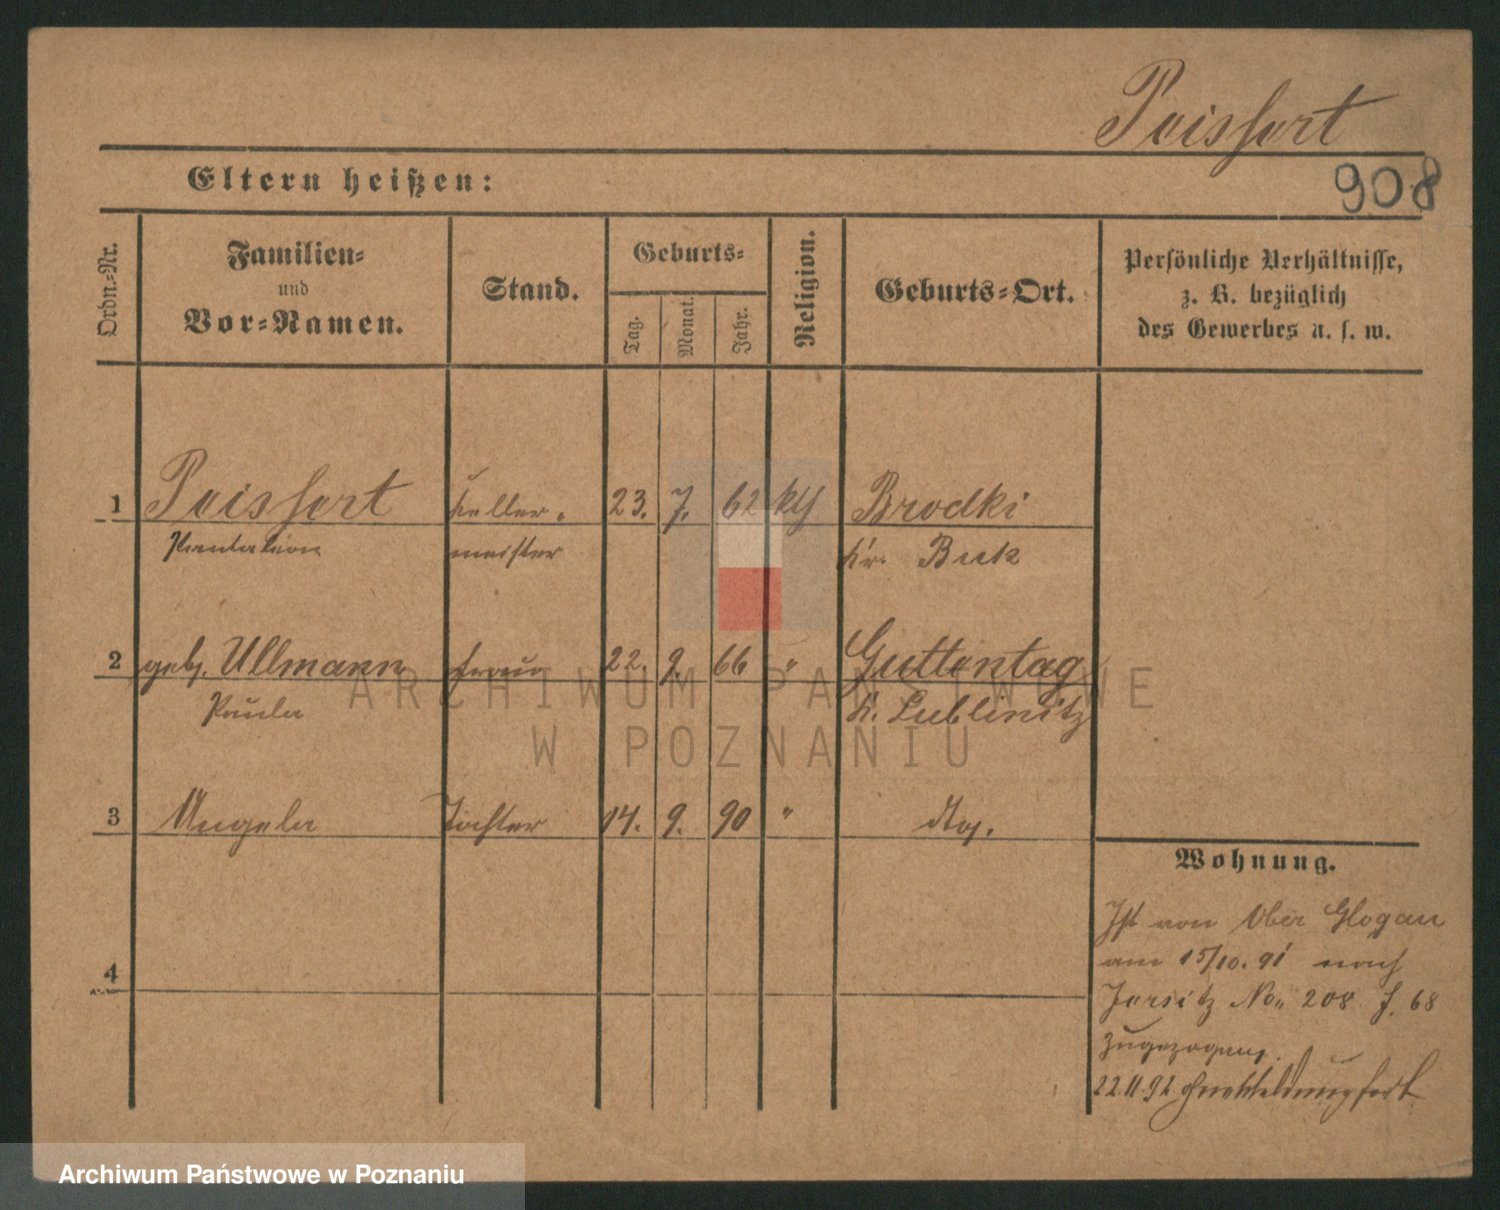 Peisfert
908
Eltern heißen:
Ordn.-Nr.
Familien-
und
Vor-Namen.
Stand.
Geburts-
Tag.
Monat.
Jahr.
Religion.
Geburts-Ort.
Persönliche Verhältnisse,
z. B. bezüglich
des Gewerbes u. s. w.
1 Peisfert Keller- 23. 7. 62 kth Brodki
Pantaleon meister Kr. Buk
2 geb. Ullmann Frau 22. 9. 66 " Guttentag
Paula K. Lublinitz
3 Angela Tochter 14. 9. 90 " dto.
4
Wohnung.
Ist von Ober Glogau
am 15/10. 91 nach
Jersitz No. 208 f. 68
zugezogen.
22.11.92.
ARCHIWUM PAŃSTWOWE
W POZNANIU
Archiwum Państwowe w Poznaniu